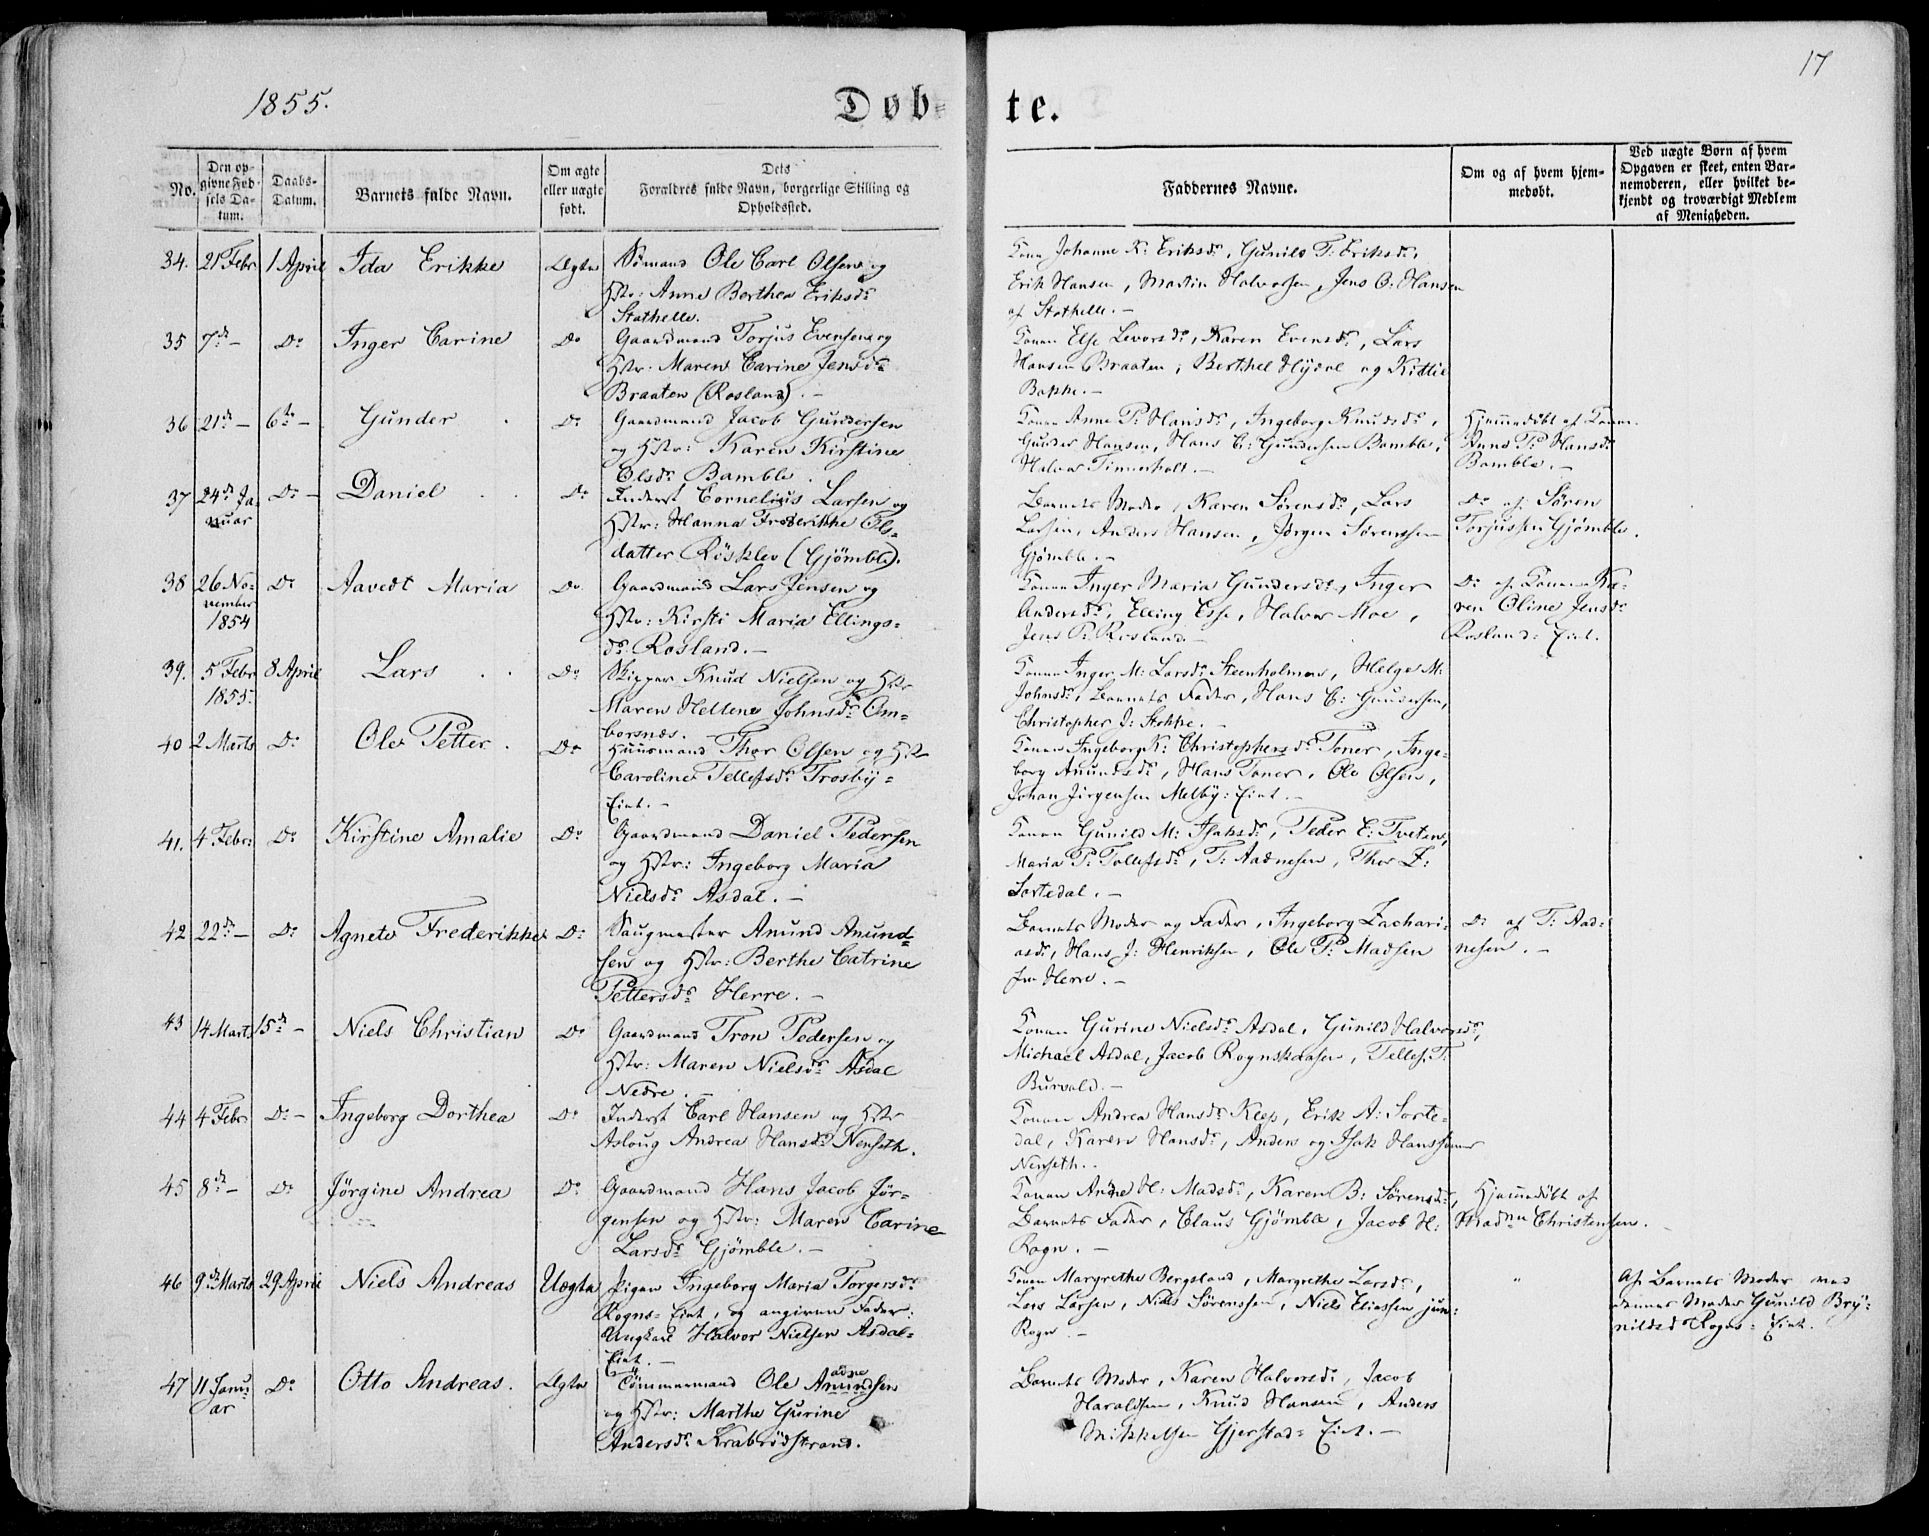 1855.
Døb-
te.
17
No.
Den op-
givne Fød-
sels Da-
tum.
Daabs-
Datum.
Barnets fulde Navn.
Om ægte
eller uægte
født.
Dets
Forældres fulde Navn, borgerlige Stilling og
Opholdssted.
Faddernes Navne.
Om og af hvem hjem-
medøbt.
Ved uægte Børn af hvem
Opgaven er skeet, enten Bar-
nemoderen, eller hvilket be-
kjendt og troværdigt Medlem
af Menigheden.
34. 21 Febr 1 April Ida Erikke Ægte Sømand Ole Carl Olsen og
Hstr: Anne Berthea Eriksdr
Stathelle.
Konen Johanne K: Eriksdr, Gunild T: Eriksdr,
Erik Hansen, Martin Halvorsen, Jens C: Hansen
af Stathelle. -
35 7de - Do Inger Carine Do Gaardmand Torjus Evensen og
Hstr. Maren Carine Jensdr
Braaten (Rosland). -
Konen Else Levorsdr, Karen Evensdr, Lars
Hansen Braaten, Berthel Hydal og Kittil
Bakke. -
36 21de - 6te - Gunder Do Gaardmand Jacob Gundersen
og Hstr: Karen Kirstine
Olsdr Bamble.
Konen Anne P: Hansdr, Ingeborg Knudsdr,
Gunder Hansen, Hans C: Gundersen Bamble,
Halvor Tinnerholt. -
Hjemmedøbt af Konen
Anne P: Hansdr
Bamble. -
37 24de Ja-
nuar Do - Daniel Do Inderst Cornelius Larsen og
Hstr: Hanna Frederikke Ols-
datter Röskler (Gjömble).
Barnets Moder, Karen Sörensdr, Lars
Larsen, Anders Hansen, Jörgen Sörenssen
Gjömble. -
Do af Sören
Torjussen Gjömble.
38 26 No-
vember
1854 Do Aavedt Maria Do Gaardmand Lars Jensen og
Hstr: Kirsti Maria Ellings-
dr Rosland. -
Konen Inger Maria Gundersdr, Inger
Andersdr, Elling Esse, Halvor Moe,
Jens P: Rosland. -
Do af Konen Ka-
ren Oline Jensdr
Rosland: Eiet.
39. 5 Febr
1855. 8 April Lars Do Skipper Knud Nielsen og Hstr
Maren Hellene Johnsdr Om-
borsnæs.
Konen Inger M: Larsdr Steenholmen, Helge M:
Johnsdr, Barnets Fader, Hans C: Gundersen,
Christopher J: Stokke. -
40 2 Marts Do Ole Petter. Do Huusmand Thor Olsen og Hstr
Caroline Tellefsdr Trosby-
Eiet. -
Konen Ingeborg K: Christophersdr Toner, Inge-
borg Amundsdr, Hans Toner, Ole Olsen,
Johan Jörgensen Melby: Eiet. -
41. 4 Febr: Do Kirstine Amalie Do Gaardmand Daniel Pedersen
og Hstr: Ingeborg Maria
Nielsdr Asdal. -
Konen Gunild M: Isaksdr, Peder C: Tveten,
Maria P: Tollefsdr, T: Aadnesen, Thor Z:
Sortedal. -
42 22de - Do Agnete Frederikke Do Saugmester Amund Amund-
sen og Hstr: Berthe Catrine
Pettersdr Herre. -
Barnets Moder og Fader, Ingeborg Zachari-
asdr, Hans J: Henriksen, Ole P: Madsen
fra Herre. -
Do af T: Aad-
nesen. -
43 14 Marts 15de - Niels Christian Do Gaardmand Tron Pedersen og
Hstr: Maren Nielsdr Asdal
Nedre. -
Konen Gurine Nielsdr Asdal, Gunild Halvorsdr,
Michael Asdal, Jacob Rognskaasen, Tellef T:
Burvald. -
44 4 Febr Do - Ingeborg Dorthea Do Inderst Carl Hansen og Hstr
Asloug Andrea Hansdr Nenseth.
Konen Andrea Hansdr Keep, Erik A: Sorte-
dal, Karen Hansdr, Anders og Isak Hanssönner
Nenseth.
45 8de - Do Jörgine Andrea Do Gaardmand Hans Jacob Jör-
gensen og Hstr: Maren Carine
Larsdr Gjömble. -
Konen Andre H: Madsdr, Karen B: Sörensdr,
Barnets Fader, Claus Gjömble, Jacob H:
Rogn. -
Hjemmedöbt af
Madme Christensen. -
46 9de Marts 29 April Niels Andreas Uægte Pigen Ingeborg Maria Torgersdr
Rogns-Eiet, og angiven Fader:
Ungkarl Halvor Nielsen Asdal-
Eiet. -
Konen Margrethe Bergsland, Margrethe Larsdr,
Lars Larsen, Niels Sörenssen, Niels Eliassen jun:
Rogn. -
"
Af Barnets Moder med
dennes Moder Gunild Bry-
nildsd Rogns-Eiet.
47 11 Janu-
ar Do Otto Andreas. Ægte Tömmermand Ole Amundsen
og Hstr: Marthe Gurine
Andersdr Krabrödstrand.
Barnets Moder, Karen Halvorsdr, Jacob
Haraldsen, Knud Hansen, Anders
Mikkelsen Gjerstad-Eiet. -